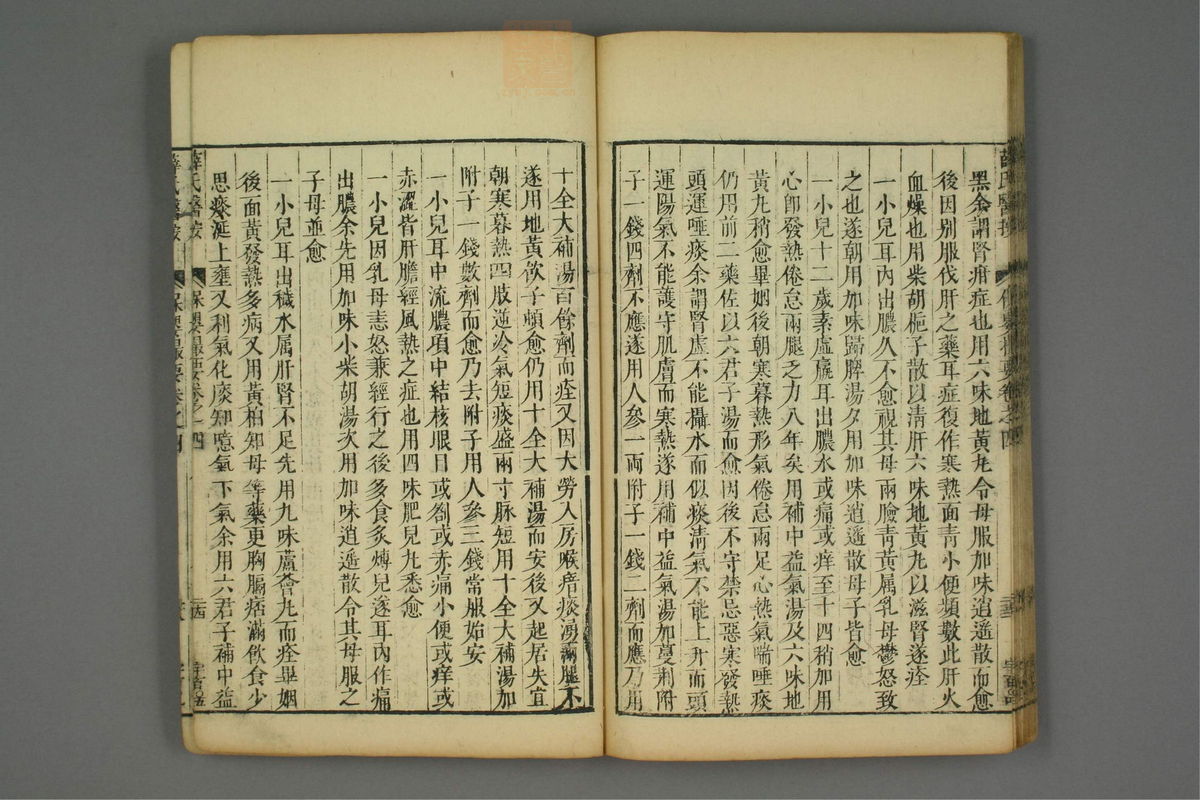 黑余謂腎疳症也用六味地黃丸令母服加味逍遥散而愈
後因别服伐肝之藥耳症復作寒熱面青小便頻數此肝火
血燥也用柴胡梔子散以清肝六味地黃丸以滋腎遂痊
一小兒耳內出膿久不愈視其母兩臉青黃属乳母鬱怒致
之也遂朝用加味歸脾湯夕用加味逍遥散母子皆愈
一小兒十二歲素虛羸耳出膿水或痛或痒至十四稍加用
心即發熱倦怠兩腿乏力八年矣用補中益氣湯及六味地
黃丸稍愈畢姻後朝寒暮熱形氣倦怠兩足心熱氣喘唾痰
仍用前二藥佐以六君子湯而愈因後不守禁忌惡寒發熱
頭運唾痰余謂腎虛不能攝水而似痰清氣不能上升而頭
運陽氣不能護守肌膚而寒熱遂用補中益氣湯加蔓荆附
子一錢四劑不應遂用人參一兩附子一錢二劑而應乃用
十全大補湯百餘劑而痊又因大勞入房喉瘖痰湧兩腿不
遂用地黃飲子頓愈仍用十全大補湯而安後又起居失宜
朝寒暮熱四肢逆冷氣短痰盛兩寸脉短用十全大補湯加
附子一錢數劑而愈乃去附子用人參三錢常服始安
一小兒耳中流膿項中結核眼目或劄或赤痛小便或痒或
赤澀皆肝膽經風熱之症也用四味肥兒丸悉愈
一小兒因乳母恚怒兼經行之後多食炙煿兒遂耳內作痛
出膿余先用加味小柴胡湯次用加味逍遥散令其母服之
子母並愈
一小兒耳出穢水属肝腎不足先用九味蘆薈丸而痊畢姻
後面黃發熱多病又用黃柏知母等藥更胸膈痞滿飲食少
思痰涎上壅又利氣化痰知噫氣下氣余用六君子補中益
薛氏醫按
保嬰撮要卷之四